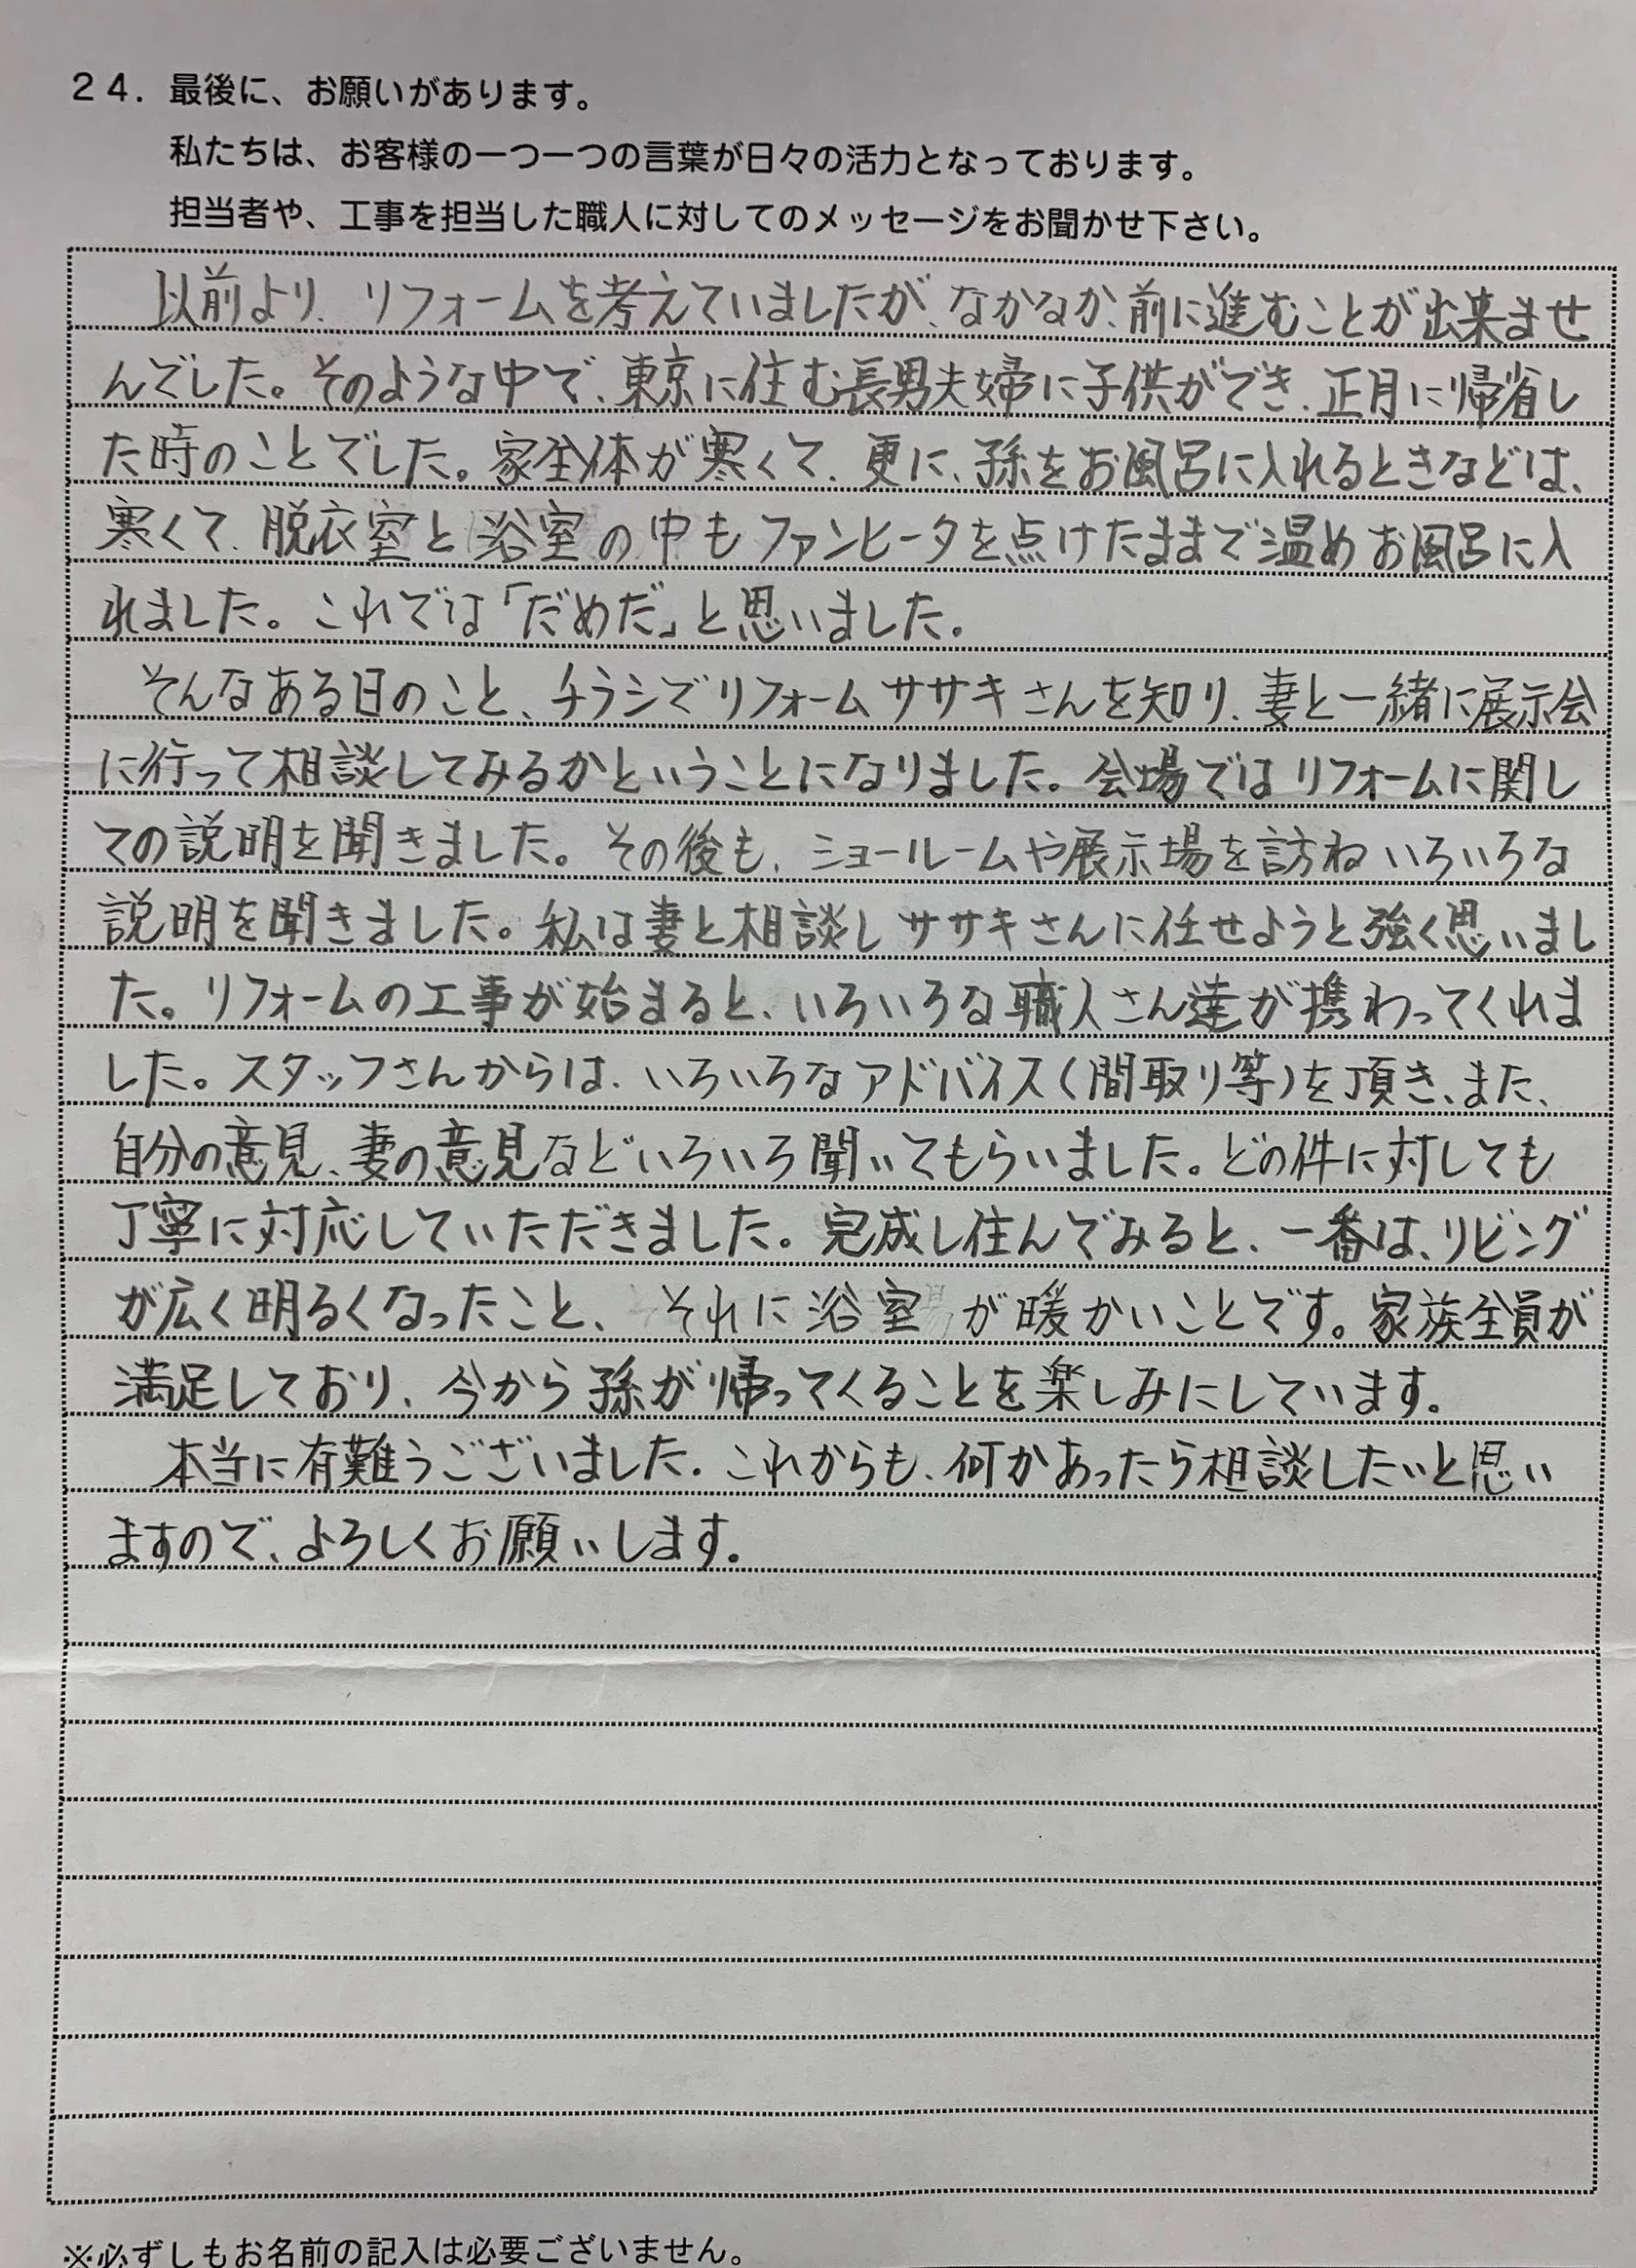 24. 最後に、お願いがあります。
私たちは、お客様の一つ一つの言葉が日々の活力となっております。
担当者や、工事を担当した職人に対してのメッセージをお聞かせ下さい。
以前より、リフォームを考えていましたが、なかなか、前に進むことが出来ませ
んでした。そのような中で、東京に住む長男夫婦に子供ができ、正月に帰省し
た時のことでした。家全体が寒くて、更に、孫をお風呂に入れるときなどは、
寒くて、脱衣室と浴室の中もファンヒータを点けたままで温めお風呂に入
れました。これでは「だめだ」と思いました。
そんなある日のこと、チラシでリフォームササキさんを知り、妻と一緒に展示会
に行って相談してみるかということになりました。会場ではリフォームに関し
ての説明を聞きました。その後も、ショールームや展示場を訪ねいろいろな
説明を聞きました。私は妻と相談しササキさんに任せようと強く思いまし
た。リフォームの工事が始まると、いろいろな職人さん達が携わってくれま
した。スタッフさんからは、いろいろなアドバイス(間取り等)を頂き、また、
自分の意見、妻の意見などいろいろ聞いてもらいました。どの件に対しても
丁寧に対応していただきました。完成し住んでみると、一番は、リビング
が広く明るくなったこと、それに浴室が暖かいことです。家族全員が
満足しており、今から孫が帰ってくることを楽しみにしています。
本当に有難うございました。これからも、何かあったら相談したいと思い
ますので、よろしくお願いします。
※必ずしもお名前の記入は必要ございません。